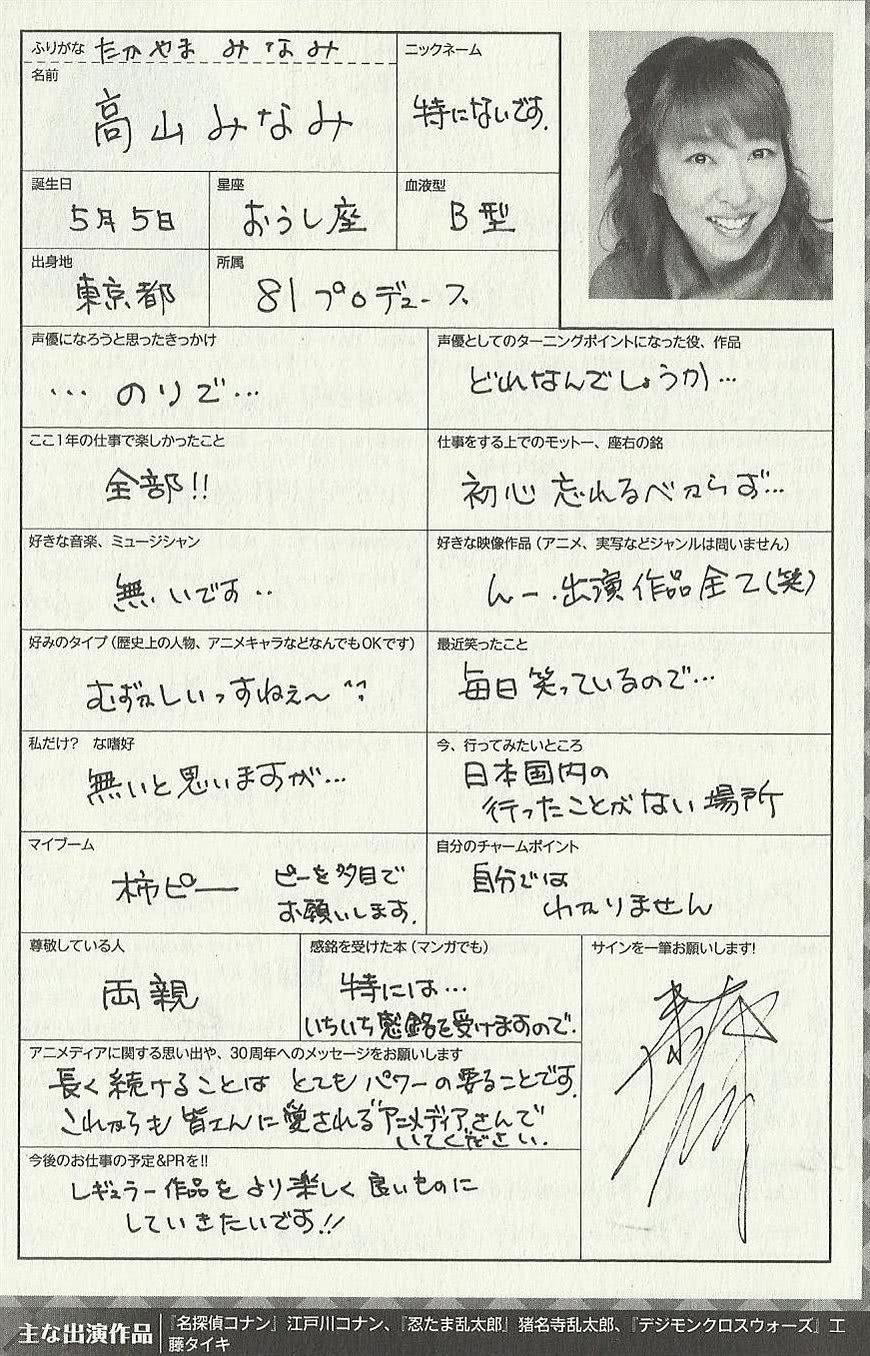 ふりがな たかやま みなみ
名前
高山みなみ
ニックネーム
特にないです.
誕生日
5月5日
星座
おうし座
血液型
B型
出身地
東京都
所属
81プロデュース
声優になろうと思ったきっかけ
…のりで…
声優としてのターニングポイントになった役、作品
どれなんでしょうか…
ここ1年の仕事で楽しかったこと
全部!!
仕事をする上でのモットー、座右の銘
初心忘れるべからず…
好きな音楽、ミュージシャン
無いです..
好きな映像作品(アニメ、実写などジャンルは問いません)
んー.出演作品全て(笑)
好みのタイプ(歴史上の人物、アニメキャラなどなんでもOKです)
むずかしいっすねぇ〜
最近笑ったこと
毎日笑っているので…
私だけ? な嗜好
無いと思いますが…
今、行ってみたいところ
日本国内の
行ったことがない場所
マイブーム
柿ピー ピーを多目で
お願いします.
自分のチャームポイント
自分では
わかりません
尊敬している人
両親
感銘を受けた本(マンガでも)
特には…
いちいち感銘を受けますので.
サインを一筆お願いします!
アニメディアに関する思い出や、30周年へのメッセージをお願いします
長く続けることは とてもパワーの要ることです.
これからも皆さんに愛される"アニメディア"さんで
いてください.
今後のお仕事の予定&PRを!!
レギュラー作品をより楽しく良いものに
していきたいです!!
主な出演作品
『名探偵コナン』江戸川コナン、『忍たま乱太郎』猪名寺乱太郎、『デジモンクロスウォーズ』工
藤タイキ